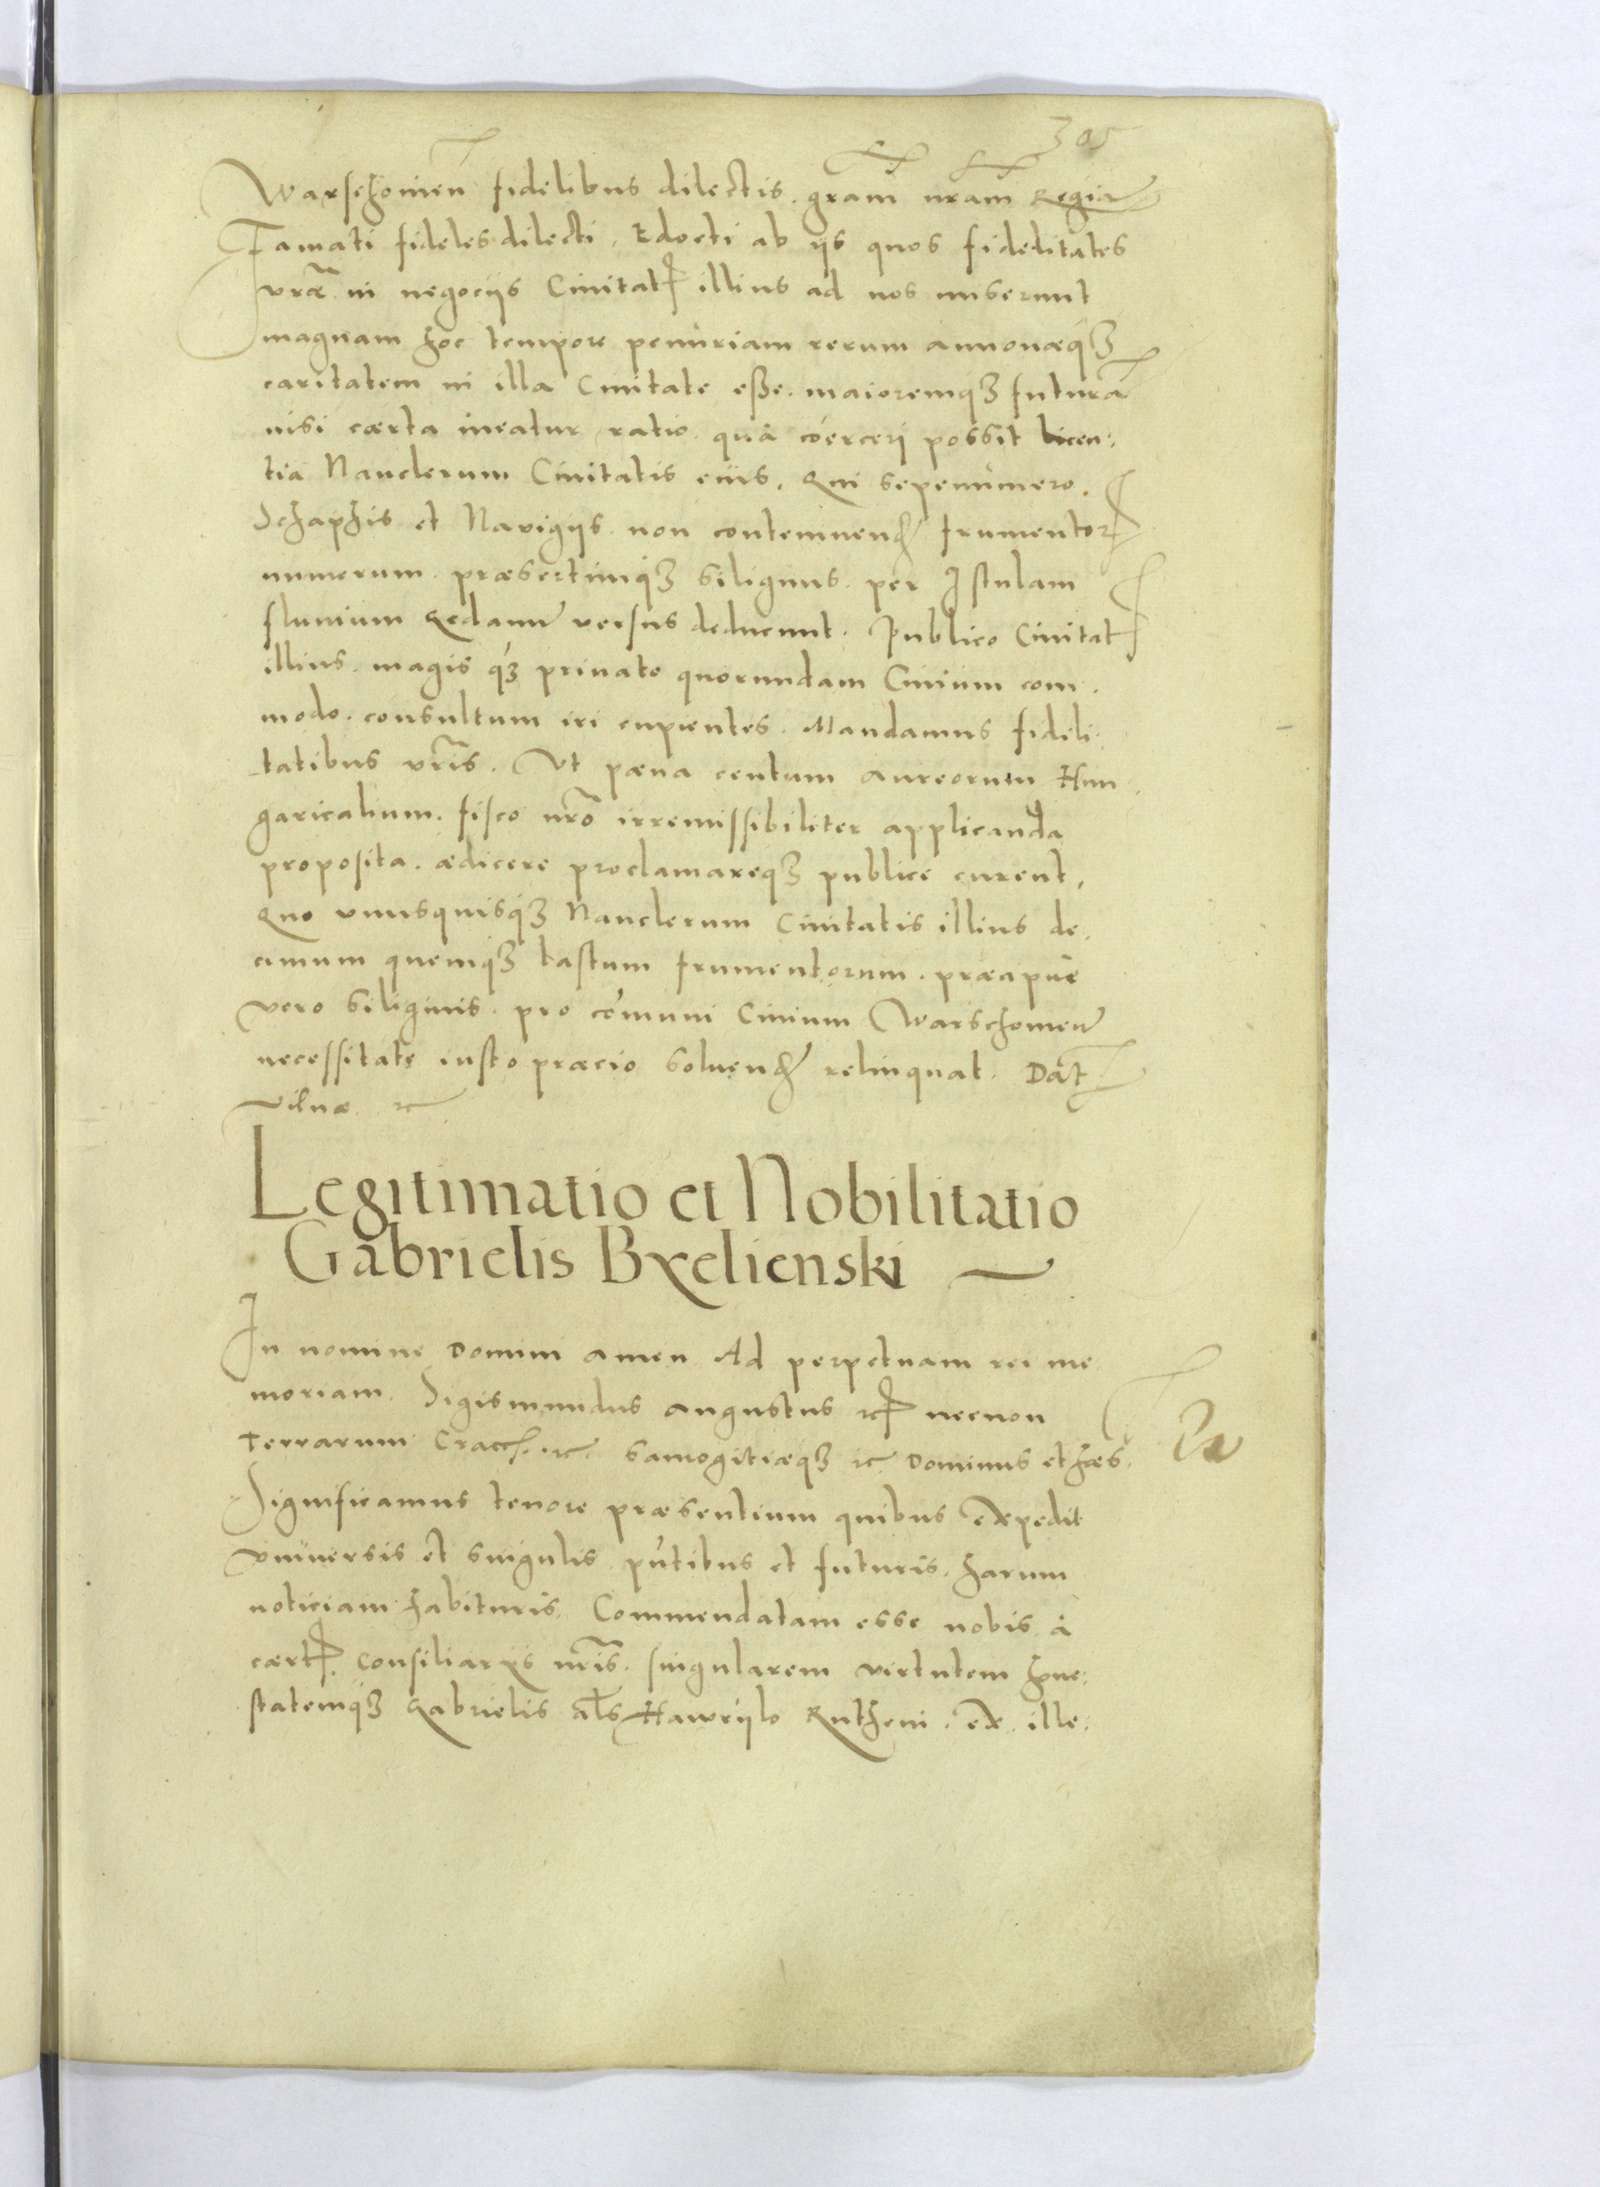 305
Warschouien fidelibus dilectis. gram nram Regia
Famati fideles dilecti, Edocti ab ijs quos fidelitates
vrae in negocijs Ciuitat illius ad nos miserunt
magnam hoc tempore penuriam rerum annonæq3
caritatem in illa Ciuitate eße. maioremq3 futura
nisi cærta ineatur ratio. qua coerceri possit licen:
tia Nauclerum Ciuitatis eiis. Qui sepenumero.
Schaphis et Nauigijs non contemnend frumentor
numerum. præsertimq3 siliginis. per Istulam
fluuium Gedanu versus deducunt. Publico Ciuitat
illius. magis q3 priuato quorundam Ciuium com.
modo. consultum iri cupientes. Mandamus fideli.
tatibus vris. Vt pæna centum aureorum Hun.
garicalium. fisco nro irremissibiliter applicanda
proposita. ædicere proclamareq3 publice curent,
Quo vnusquisq3 Nauclerum Ciuitatis illius de.
cimum quemq3 lastum frumentorum. præcipue
vero siliginis. pro comuni Ciuium Warschouien
necessitate iusto præcio soluend relinquat. Dat
Vilnæ etc
Legitimatio et Nobilitatio
Gabrielis Bxelienski
In nomine Domini amen Ad perpetuam rei me
moriam. Sigismundus augustus etc necnon
Terrarum Cracch. etc. Samogitiæq3 etc Dominus et hæs.
Significamus tenore præsentium quibus expedit
vniuersis et singulis. pntibus et futuris. harum
noticiam habituris. Commendatam esse nobis à
cært. Consiliarijs nris. singularem virtutem hone:
statemq3 Gabrielis als Hawryło Rutheni. ex ille: